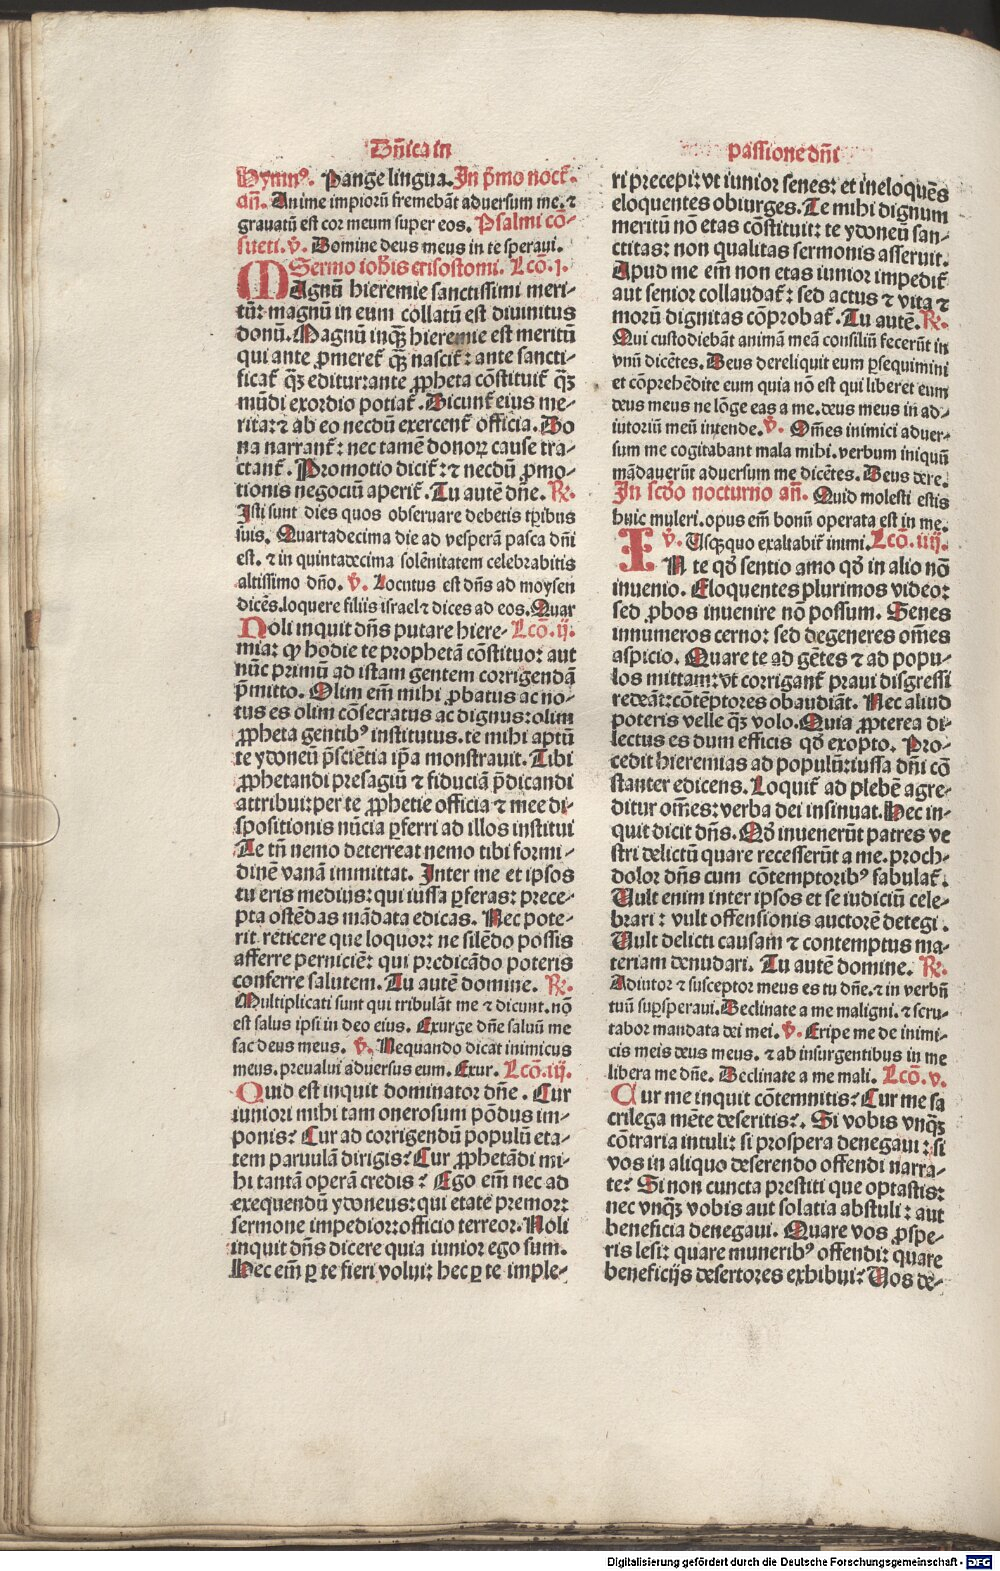 Dn̄ica in
Hymnꝰ. Pange lingua. In p̄mo noct̄.
an̄. Anime impiorū fremebāt aduersum me. ⁊
grauatū est cor meum super eos. Psalmi cō-
sueti. v̄. Domine deus meus in te speraui.
Sermo ioh̄is crisostomi. Lcō. i.
MAgnū hieremie sanctissimi meri-
tū: magnū in eum collatū est diuinitus
donū. Magnū inqꝫ hieremie est meritū
qui ante ꝓmeret̄ qꝫ nascit̄: ante sancti-
ficat̄ qꝫ editur: ante ꝓpheta cōstituit̄ qꝫ
mūdi exordio potiat̄. Dicunt̄ eius me-
rita: ⁊ ab eo necdū exercent̄ officia. Do
na narrant̄: nec tamē donoꝝ cause tra-
ctant̄. Promotio dicit̄: ⁊ necdū ꝓmo-
tionis negociū aperit̄. Tu autē dn̄e. R̄.
Isti sunt dies quos obseruare debetis tp̄ibus
suis. Quartadecima die ad vesperā pasca dn̄i
est. ⁊ in quintadecima solēnitatem celebrabitis
altissimo dn̄o. v̄. Locutus est dn̄s ad moysen
dicēs. loquere filiis israel ⁊ dices ad eos. Quar
Noli inquit dn̄s putare hiere- Lcō. ij.
mia: ꝙ hodie te prophetā cōstituo: aut
nūc primū ad istam gentem corrigendā
p̄mitto. Olim em̄ mihi ꝓbatus ac no-
tus es olim cōsecratus ac dignus: olim
ꝓpheta gentibꝰ institutus. te mihi aptū
te ydoneū p̄sciētia ip̄a monstrauit. Tibi
ꝓphetandi presagiū ⁊ fiduciā p̄dicandi
attribui: per te ꝓphetie officia ⁊ mee di-
spositionis nūcia ꝑferri ad illos institui
Te tn̄ nemo deterreat nemo tibi formi-
dinē vanā immittat. Inter me et ipsos
tu eris medius: qui iussa ꝑferas: prece-
pta ostēdas mādata edicas. Nec pote-
rit reticere que loquor: ne silēdo possis
afferre perniciē: qui predicādo poteris
conferre salutem. Tu autē domine. R̄.
Multiplicati sunt qui tribulāt me ⁊ dicunt. nō
est salus ipsi in deo eius. Exurge dn̄e saluū me
fac deus meus. v̄. Nequando dicat inimicus
meus. preualui aduersus eum. Exur. Lcō. iij.
Quid est inquit dominator dn̄e. Cur
iuniori mihi tam onerosum pōdus im-
ponis? Cur ad corrigendū populū eta-
tem paruulā dirigis? Cur ꝓphetādi mi-
hi tantā operā credis? Ego em̄ nec ad
exequendū ydoneus: qui etate premor:
sermone impedior: officio terreor. Noli
inquit dn̄s dicere quia iunior ego sum.
Hec em̄ ꝑ te fieri volui: hec ꝑ te imple-
passione dn̄i
ri precepi: vt iunior senes: et ineloquēs
eloquentes obiurges. Te mihi dignum
meritū nō etas cōstituit: te ydoneū san-
ctitas: non qualitas sermonis asseruit.
Apud me em̄ non etas iunior impedit̄
aut senior collaudat̄: sed actus ⁊ vita ⁊
morū dignitas cōprobat̄. Tu autē. R̄.
Qui custodiebāt animā meā consiliū fecerūt in
vnū dicētes. Deus dereliquit eum ꝑsequimini
et cōprehēdite eum quia nō est qui liberet eum
deus meus ne lōge eas a me. deus meus in ad-
iutoriū meū intende. v̄. Om̄es inimici aduer-
sum me cogitabant mala mihi. verbum iniquū
mādauerūt aduersum me dicētes. Deus dere.
In scd̄o nocturno an̄. Quid molesti estis
huic muleri. opus em̄ bonū operata est in me.
v̄. Usqꝫquo exaltabit̄ inimi. Lcō. iiij.
IN te qd̄ sentio amo qd̄ in alio nō
inuenio. Eloquentes plurimos video:
sed ꝓbos inuenire nō possum. Senes
innumeros cerno: sed degeneres om̄es
aspicio. Quare te ad gētes ⁊ ad popu-
los mittam: vt corrigant̄ praui disgressi
redeāt: cōtēptores obaudiāt. Nec aliud
poteris velle qꝫ volo. Quia ꝓpterea di-
lectus es dum efficis qd̄ exopto. Pro-
cedit hieremias ad populū: iussa dn̄i cō
stanter edicens. Loquit̄ ad plebē agre-
ditur om̄es: verba dei insinuat. Hec in-
quit dicit dn̄s. Qd̄ inuenerūt patres ve
stri delictū quare recesserūt a me. proch-
dolor dn̄s cum cōtemptoribꝰ fabulat̄.
Uult enim inter ipsos et se iudiciū cele-
brari: vult offensionis auctorē detegi.
Uult delicti causam ⁊ contemptus ma-
teriam denudari. Tu autē domine. R̄.
Adiutor ⁊ susceptor meus es tu dn̄e. ⁊ in verbū
tuū suꝑsperaui. Declinate a me maligni. ⁊ scru-
tabor mandata dei mei. v̄. Eripe me de inimi-
cis meis deus meus. ⁊ ab insurgentibus in me
libera me dn̄e. Declinate a me mali. Lcō. v.
Cur me inquit cōtemnitis? Cur me sa
crilega mēte deseritis?. Si vobis vnqꝫ
cōtraria intuli: si prospera denegaui: si
vos in aliquo deserendo offendi narra-
te? Si non cuncta prestiti que optastis:
nec vnqꝫ vobis aut solatia abstuli: aut
beneficia denegaui. Quare vos ꝓspe-
ris lesi: quare muneribꝰ offendi: quare
beneficijs desertores exhibui? Uos de-
Digitalisierung gefördert durch die Deutsche Forschungsgemeinschaft - DFG